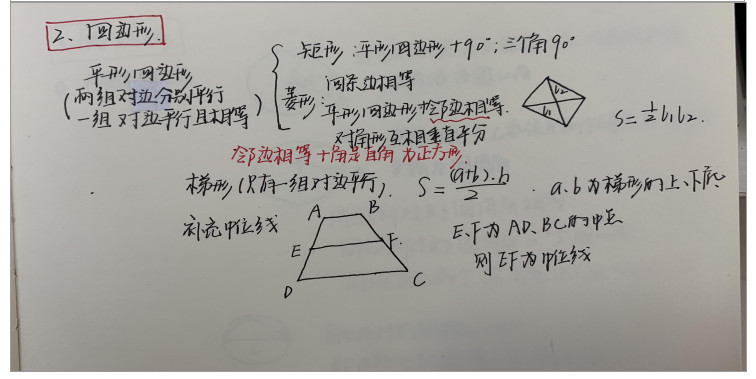 2、四边形.
平形四边形
(两组对边分别平行
一组对边平行且相等)
矩形:平形四边形+90°;三个角90°
菱形:
四条边相等
平形四边形+邻边相等.
对角形互相垂直平分
l₂
l₁
S=½l₁l₂.
邻边相等+角是直角为正方形.
梯形(只有一组对边平行). S=(a+b)·h/2 . a.b为梯形的上、下底
补充中位线
A B
E F.
D C
E、F为AD、BC的中点
则EF为中位线